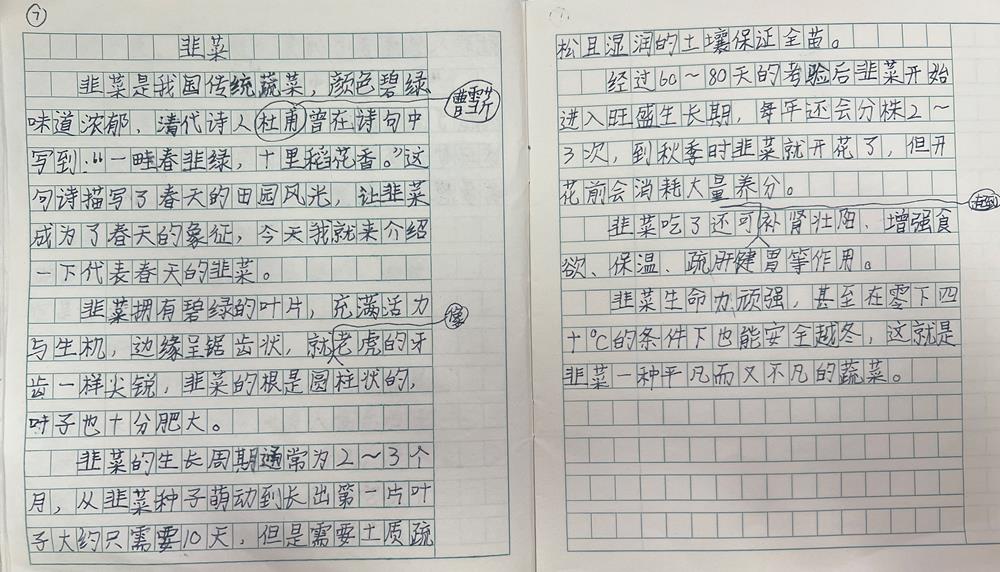 7
韭菜
韭菜是我国传统蔬菜，颜色碧绿
曹雪芹
味道浓郁、清代诗人杜甫曾在诗句中
写到：“一畦春韭绿，十里稻花香。”这
句诗描写了春天的田园风光，让韭菜
成为了春天的象征，今天我就来介绍
一下代表春天的韭菜。
韭菜拥有碧绿的叶片，充满活力
像
与生机，边缘呈锯齿状，就老虎的牙
齿一样尖锐，韭菜的根是圆柱状的，
叶子也十分肥大。
韭菜的生长周期通常为2～3个
月，从韭菜种子萌动到长出第一片叶
子大约只需要10天，但是需要土质疏
松且湿润的土壤保证全苗。
经过60～80天的考验后韭菜开始
进入旺盛生长期，每年还会分株2～
3次，到秋季时韭菜就开花了，但开
花前会消耗大量养分。
韭菜吃了还可补肾壮阳、增强食
欲、保温、疏肝健胃等作用。
韭菜生命力顽强，甚至在零下四
十℃的条件下也能安全越冬，这就是
韭菜一种平凡而又不凡的蔬菜。